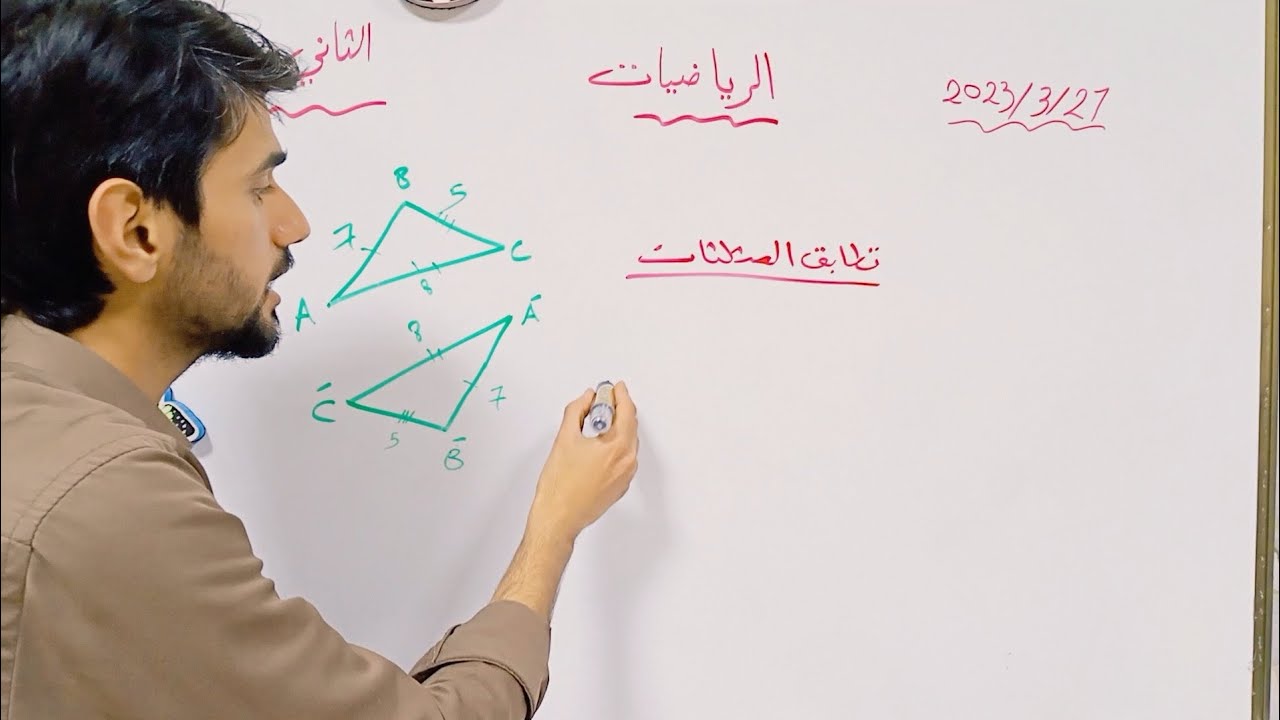 الثاني
الرياضيات
2023/3/27
تطابق المثلثات
B
5
7
C
8
A
Á
8
Ć
7
5
B́